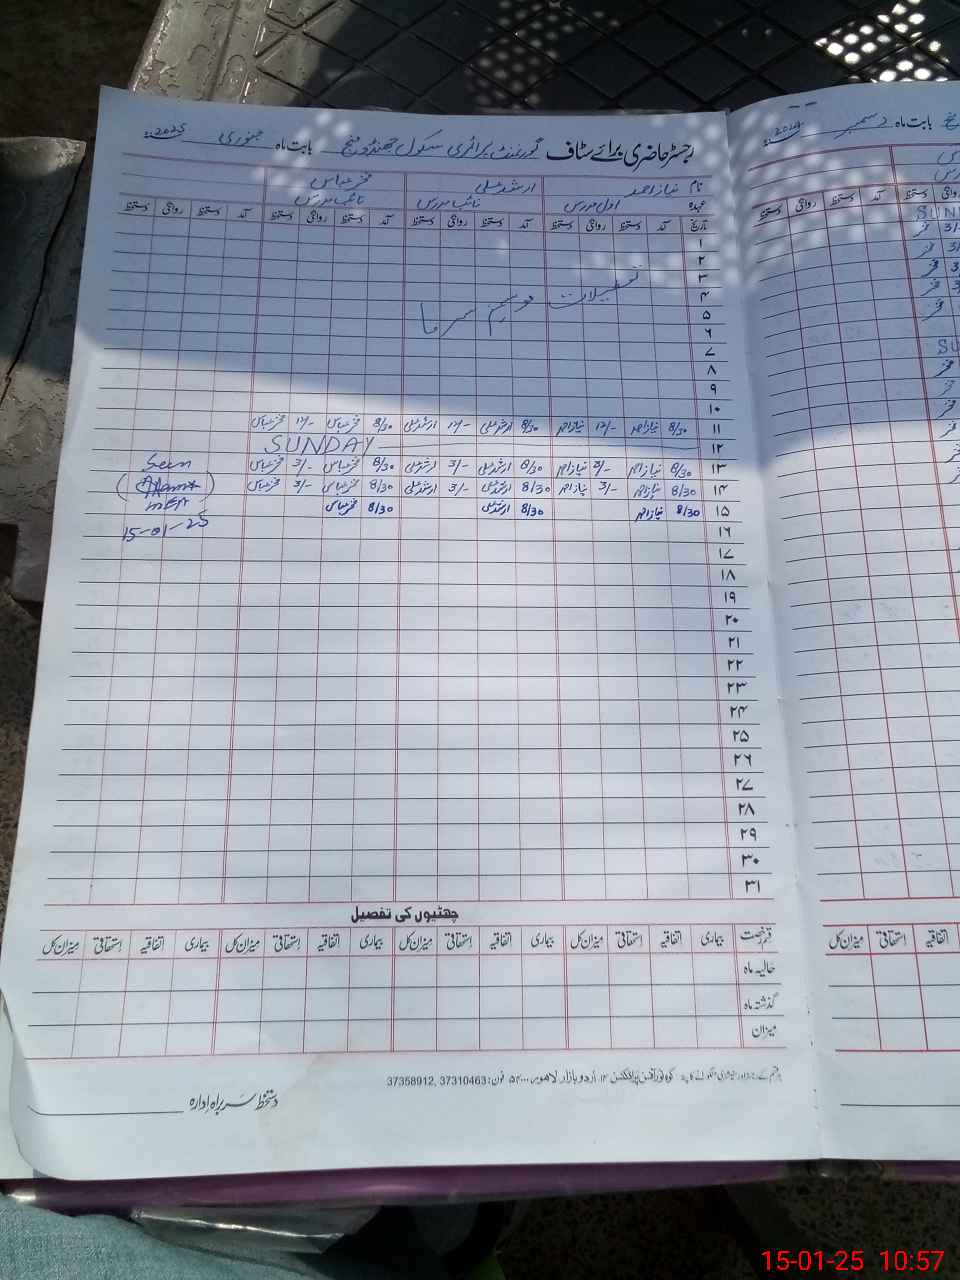 رجسٹر حاضری برائے سٹاف گورنمنٹ پرائمری سکول بابت ماہ جنوری 2025ء
نام نیاز احمد ارشد علی فخر عباس
عہدہ اول مدرس نائب مدرس نائب مدرس
تاریخ آمد دستخط روانگی دستخط آمد دستخط روانگی دستخط آمد دستخط روانگی دستخط آمد دستخط روانگی دستخط
۱
۲
۳
تعطیلات موسم سرما
۴
۵
۶
۷
۸
۹
۱۰
۱۱ 8/30 نیاز احمد 12/- نیاز احمد 8/30 ارشد علی 12/- ارشد علی 8/30 فخر عباس 12/- فخر عباس
۱۲ SUNDAY
۱۳ 8/30 نیاز احمد 3/- نیاز احمد 8/30 ارشد علی 3/- ارشد علی 8/30 فخر عباس 3/- فخر عباس
۱۴ 8/30 نیاز احمد 3/- نیاز احمد 8/30 ارشد علی 3/- ارشد علی 8/30 فخر عباس 3/- فخر عباس
۱۵ 8/30 نیاز احمد 8/30 ارشد علی 8/30 فخر عباس
Seen
MEA
15-01-25
۱۶
۱۷
۱۸
۱۹
۲۰
۲۱
۲۲
۲۳
۲۴
۲۵
۲۶
۲۷
۲۸
۲۹
۳۰
۳۱
چھٹیوں کی تفصیل
قسم رخصت بیماری اتفاقیہ استحقاقی میزان کل بیماری اتفاقیہ استحقاقی میزان کل بیماری اتفاقیہ استحقاقی میزان کل بیماری اتفاقیہ استحقاقی میزان کل
حالیہ ماہ
گذشتہ ماہ
میزان
اردو بازار لاہور فون: 37310463, 37358912
دستخط سربراہ ادارہ
بابت ماہ دسمبر 2024ء
دستخط روانگی دستخط آمد دستخط روانگی
اتفاقیہ استحقاقی میزان کل
15-01-25 10:57